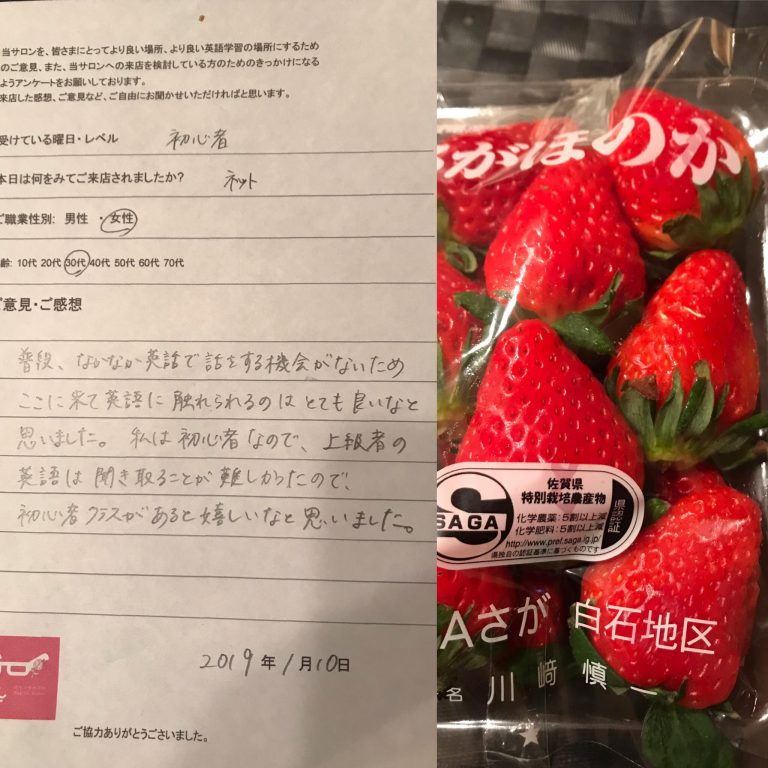 当サロンを、皆さまにとってより良い場所、より良い英語学習の場所にするため
のご意見、また、当サロンへの来店を検討している方のためのきっかけになる
ようアンケートをお願いしております。
来店した感想、ご意見など、ご自由にお聞かせいただければと思います。
受けている曜日・レベル 初心者
本日は何をみてご来店されましたか? ネット
ご職業性別: 男性 ・女性
齢: 10代 20代 30代 40代 50代 60代 70代
ご意見・ご感想
普段、なかなか英語で話をする機会がないため
ここに来て英語に触れられるのはとても良いなと
思いました。私は初心者なので、上級者の
英語は聞き取ることが難しかったので、
初心者クラスがあると嬉しいなと思いました。
2019年1月10日
ご協力ありがとうございました。
がほのか
佐賀県
特別栽培農産物
化学農薬:5割以上減
化学肥料:5割以上減
http://www.pref.saga.lg.jp/
県独自の認証基準に基づくものです
県認証
SAGA
Aさが 白石地区
名 川﨑 慎一